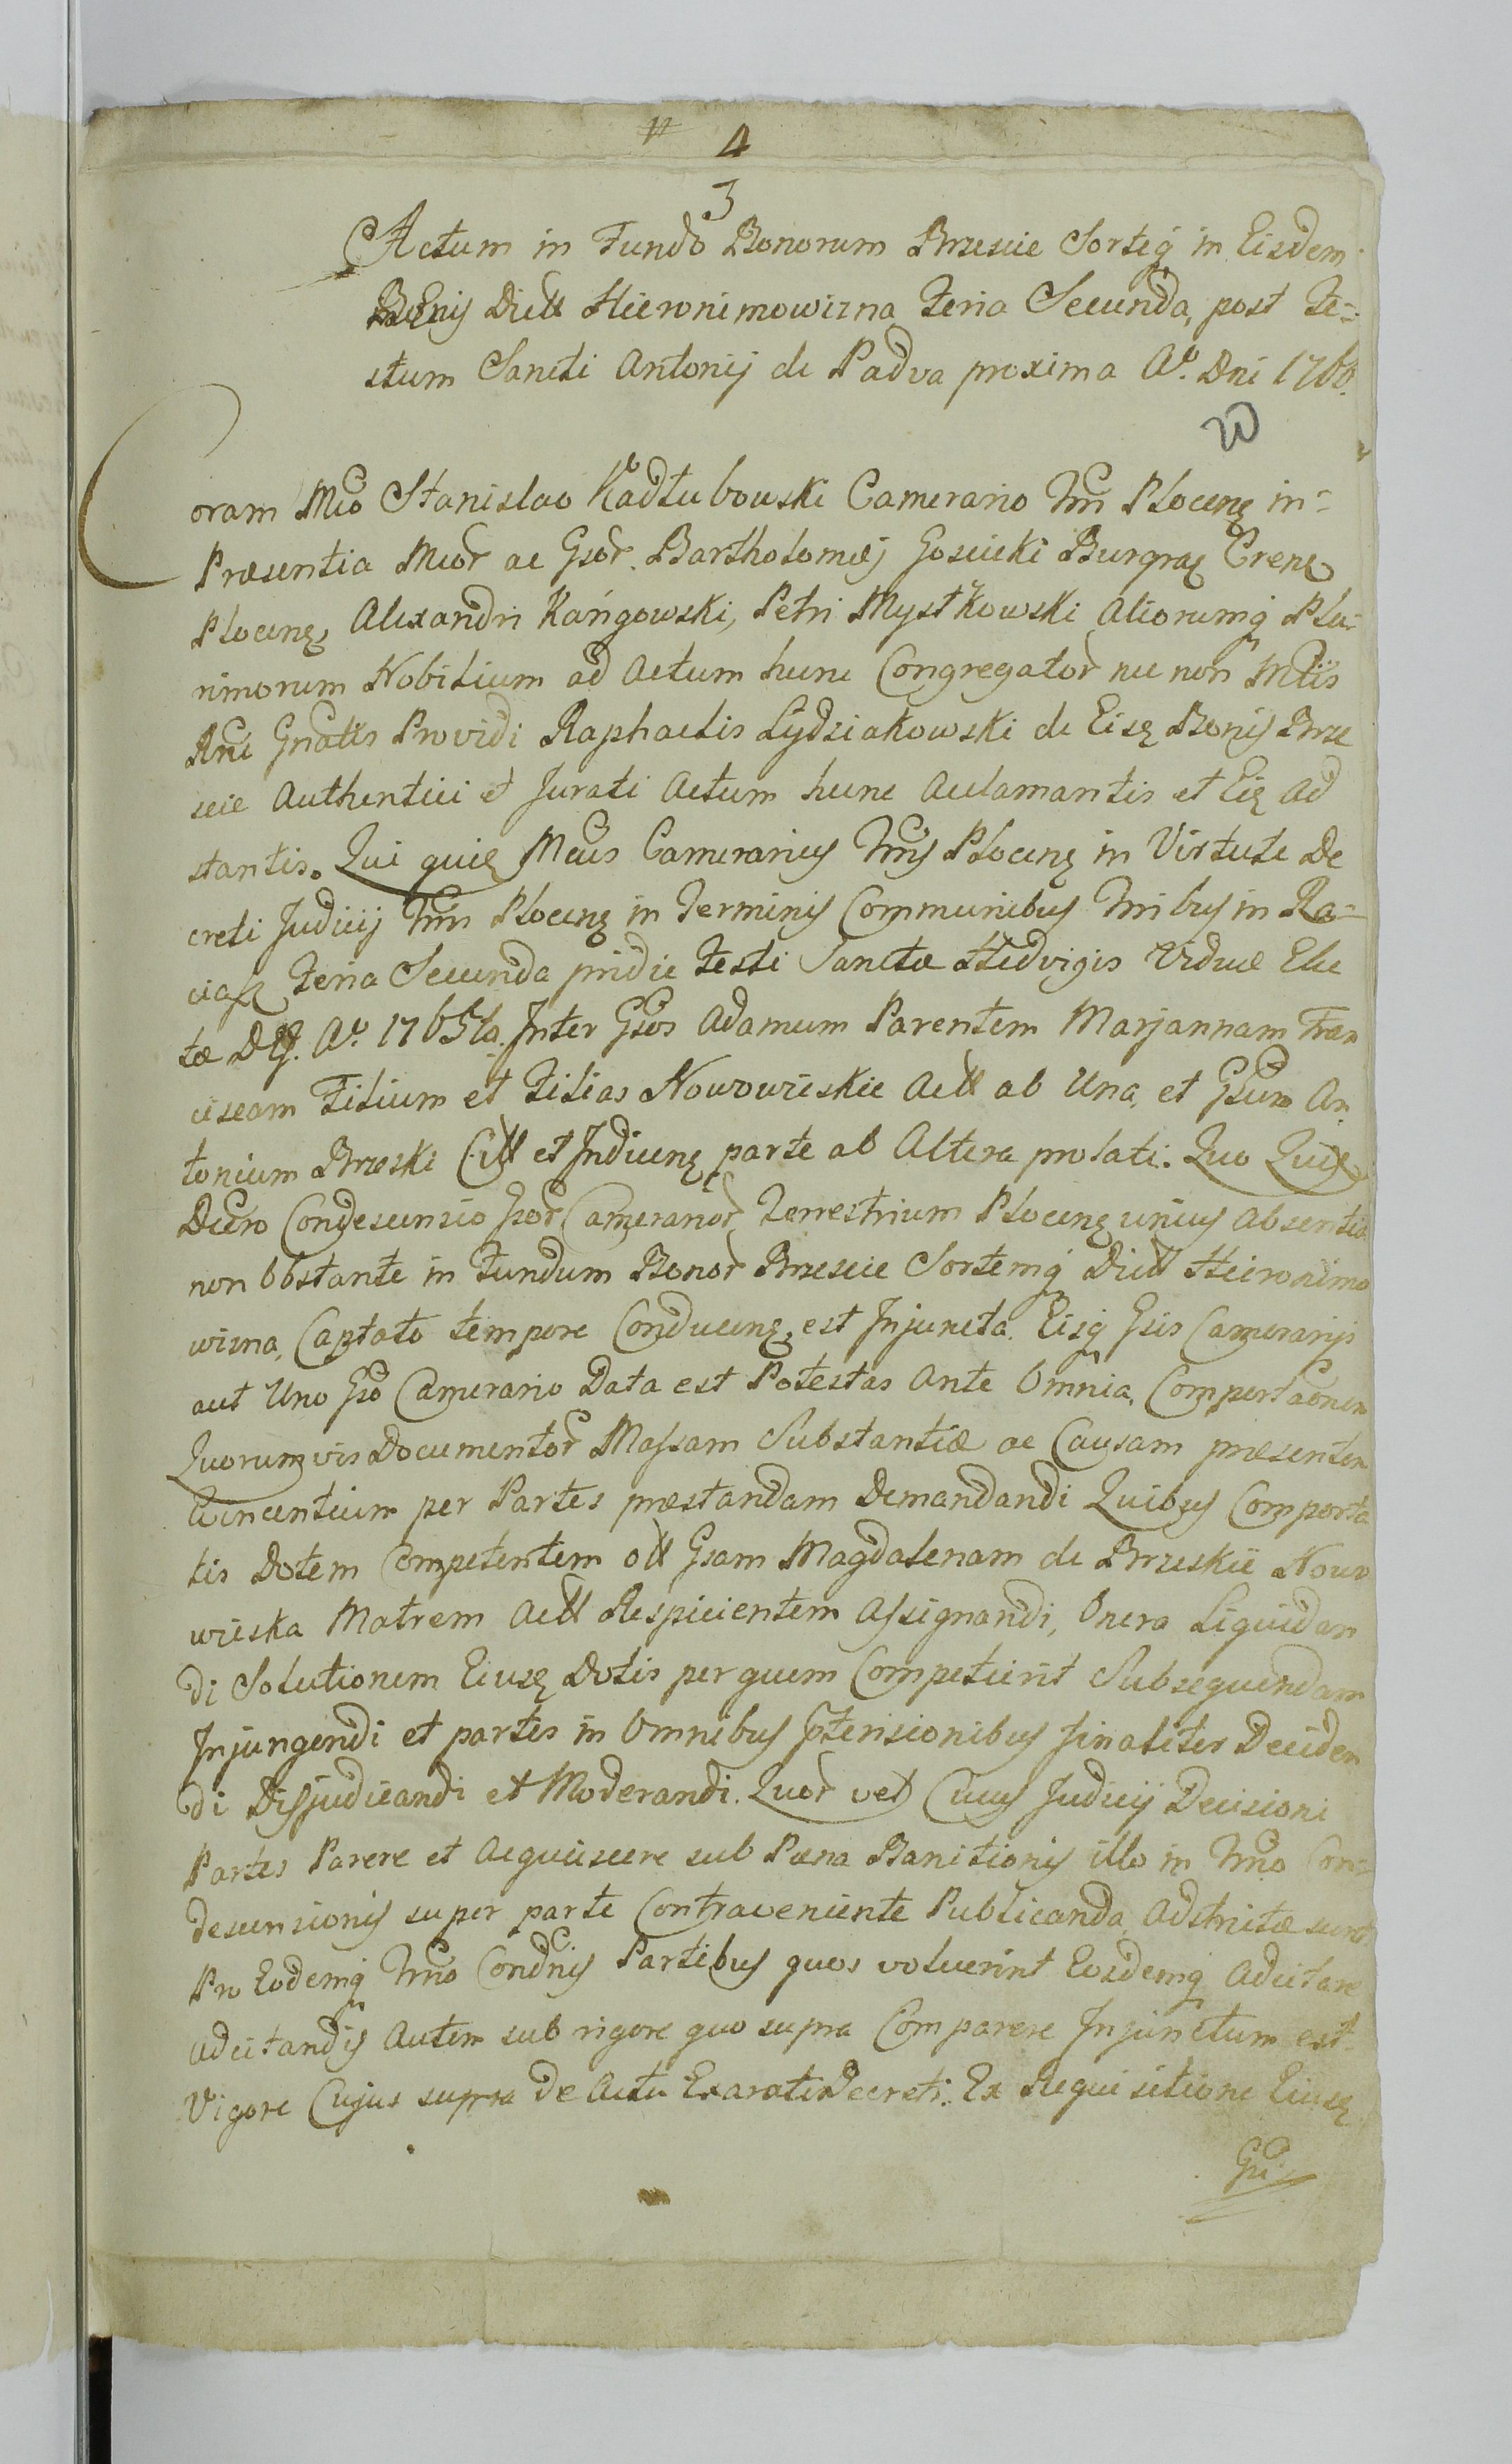 4
3
Actum in Fundo Bonorum Brzescie Sorteq in Eisdem
Bonis Dictt Hieronimowizna Feria Secunda, post Fe-
stum Sancti Antonij de Padva proxima Ao. Dni 1766.
Coram Mco Stanislao Kadłubowski Camerario Trri Plocenę in-
Præsentia Mcor ac Gsor. Bartholomæj Goscicki Burgraę Crenę
Plocenę, Alexandri Kańgowski, Petri Mystkowski Aliorumq Plu-
rimorum Nobilium ad Actum hunc Congregator nec non Mtis
Rni Gnalis Providi Raphaelis Lydziakowski de Eisę Bonis Brze
scie Authentici et Jurati Actum hunc Acclamantis et Eię Ad
stantis. Qui quię Mcus Camerarius Trris Plocenę in Virtute De
creti Judicij Trris Plocenę in Terminis Communibus Trribus in Ra-
ciąż Feria Secunda pridie Festi Sanctæ Hedvigis Viduæ Elec
tæ Ao. 1765to. Inter Gsos Adamum Parentem Marjannam Fran
ciscam Filium et Filias Nowowieskie Actt ab Una, et Gsum An
tonium Brzeski Citt et Indicenę parte ab Altera prolati. Quo Quię
Dcreto Condescensio Gsor Camerarior Terrestrium Plocenę unius Absentia
non Obstante in Fundum Bonor Brzescie Sortemq Dictt Hieronimo
wizna, Captato tempore Conducenę, est Injuncta. Eisq Gsis Camerarijs
aut Uno Gso Camerario Data est Potestas Ante Omnia, Comportaonem
Quorumvis Documentor Massam Substantiæ ac Causam præsentem
Concernentium per Partes præstandam Demandandi Quibus Comporta
tis Dotem Competentem ott Gsam Magdalenam de Brzeskie Nowo
wieska Matrem Actt Respicientem Assignandi, Onera Liquidan
di Solutionem Eiusę Dotis per quem Competierit Subsequendam
Injungendi et partes in Omnibus Ptensionibus finaliter Deciden
di Disjudicandi et Moderandi. Quor vel Cuius Judicij Decisioni
Partes Parere et Acquiescere sub Pæna Banitionis illo in Trrno Con-
descensionis super parte Contraveniente Publicanda Adstrictæ sunt
Pro Eodemq Trrno Condnis Partibus quos voluerint Eosdemq Adcitare
adcitandis Autem sub rigore quo supra Comparere Injunctum est.
Vigore Cujus supra de Actu Exarati Decreti. Ex Requisitione Eiusę
Gsi